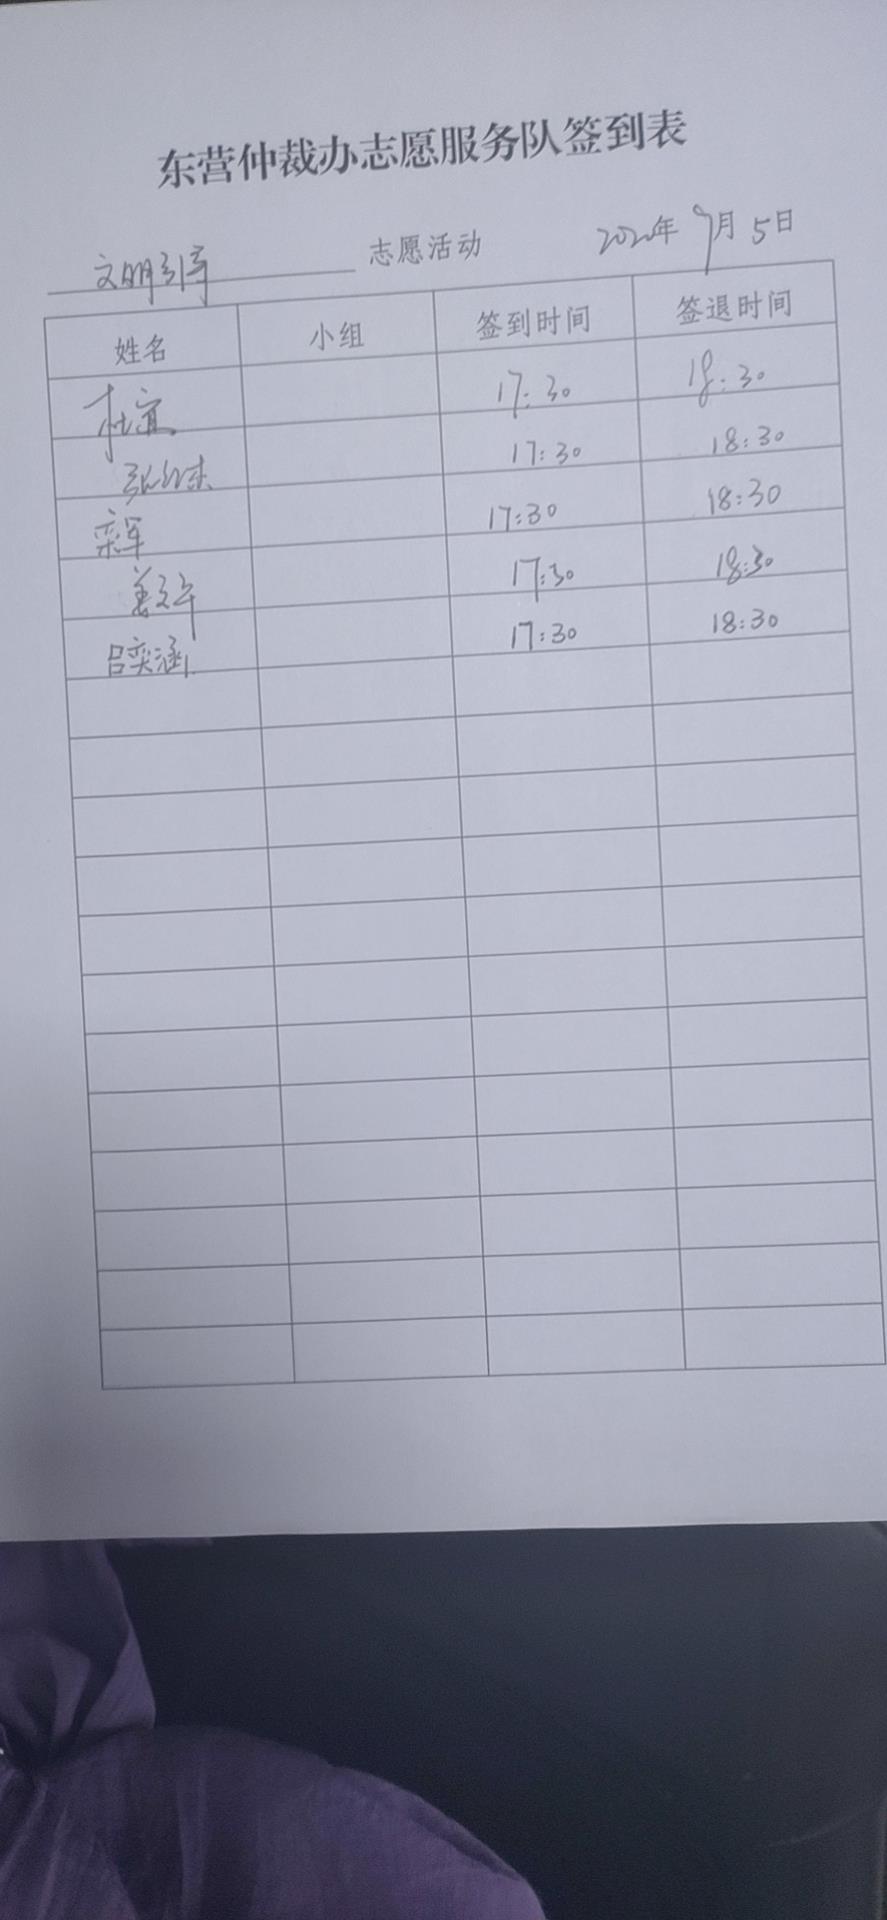 东营仲裁办志愿服务队签到表
文明引导 志愿活动 2020年9月5日
姓名 小组 签到时间 签退时间
杜宜 17:30 18:30
17:30 18:30
栾军 17:30 18:30
17:30 18:30
吕奕涵 17:30 18:30